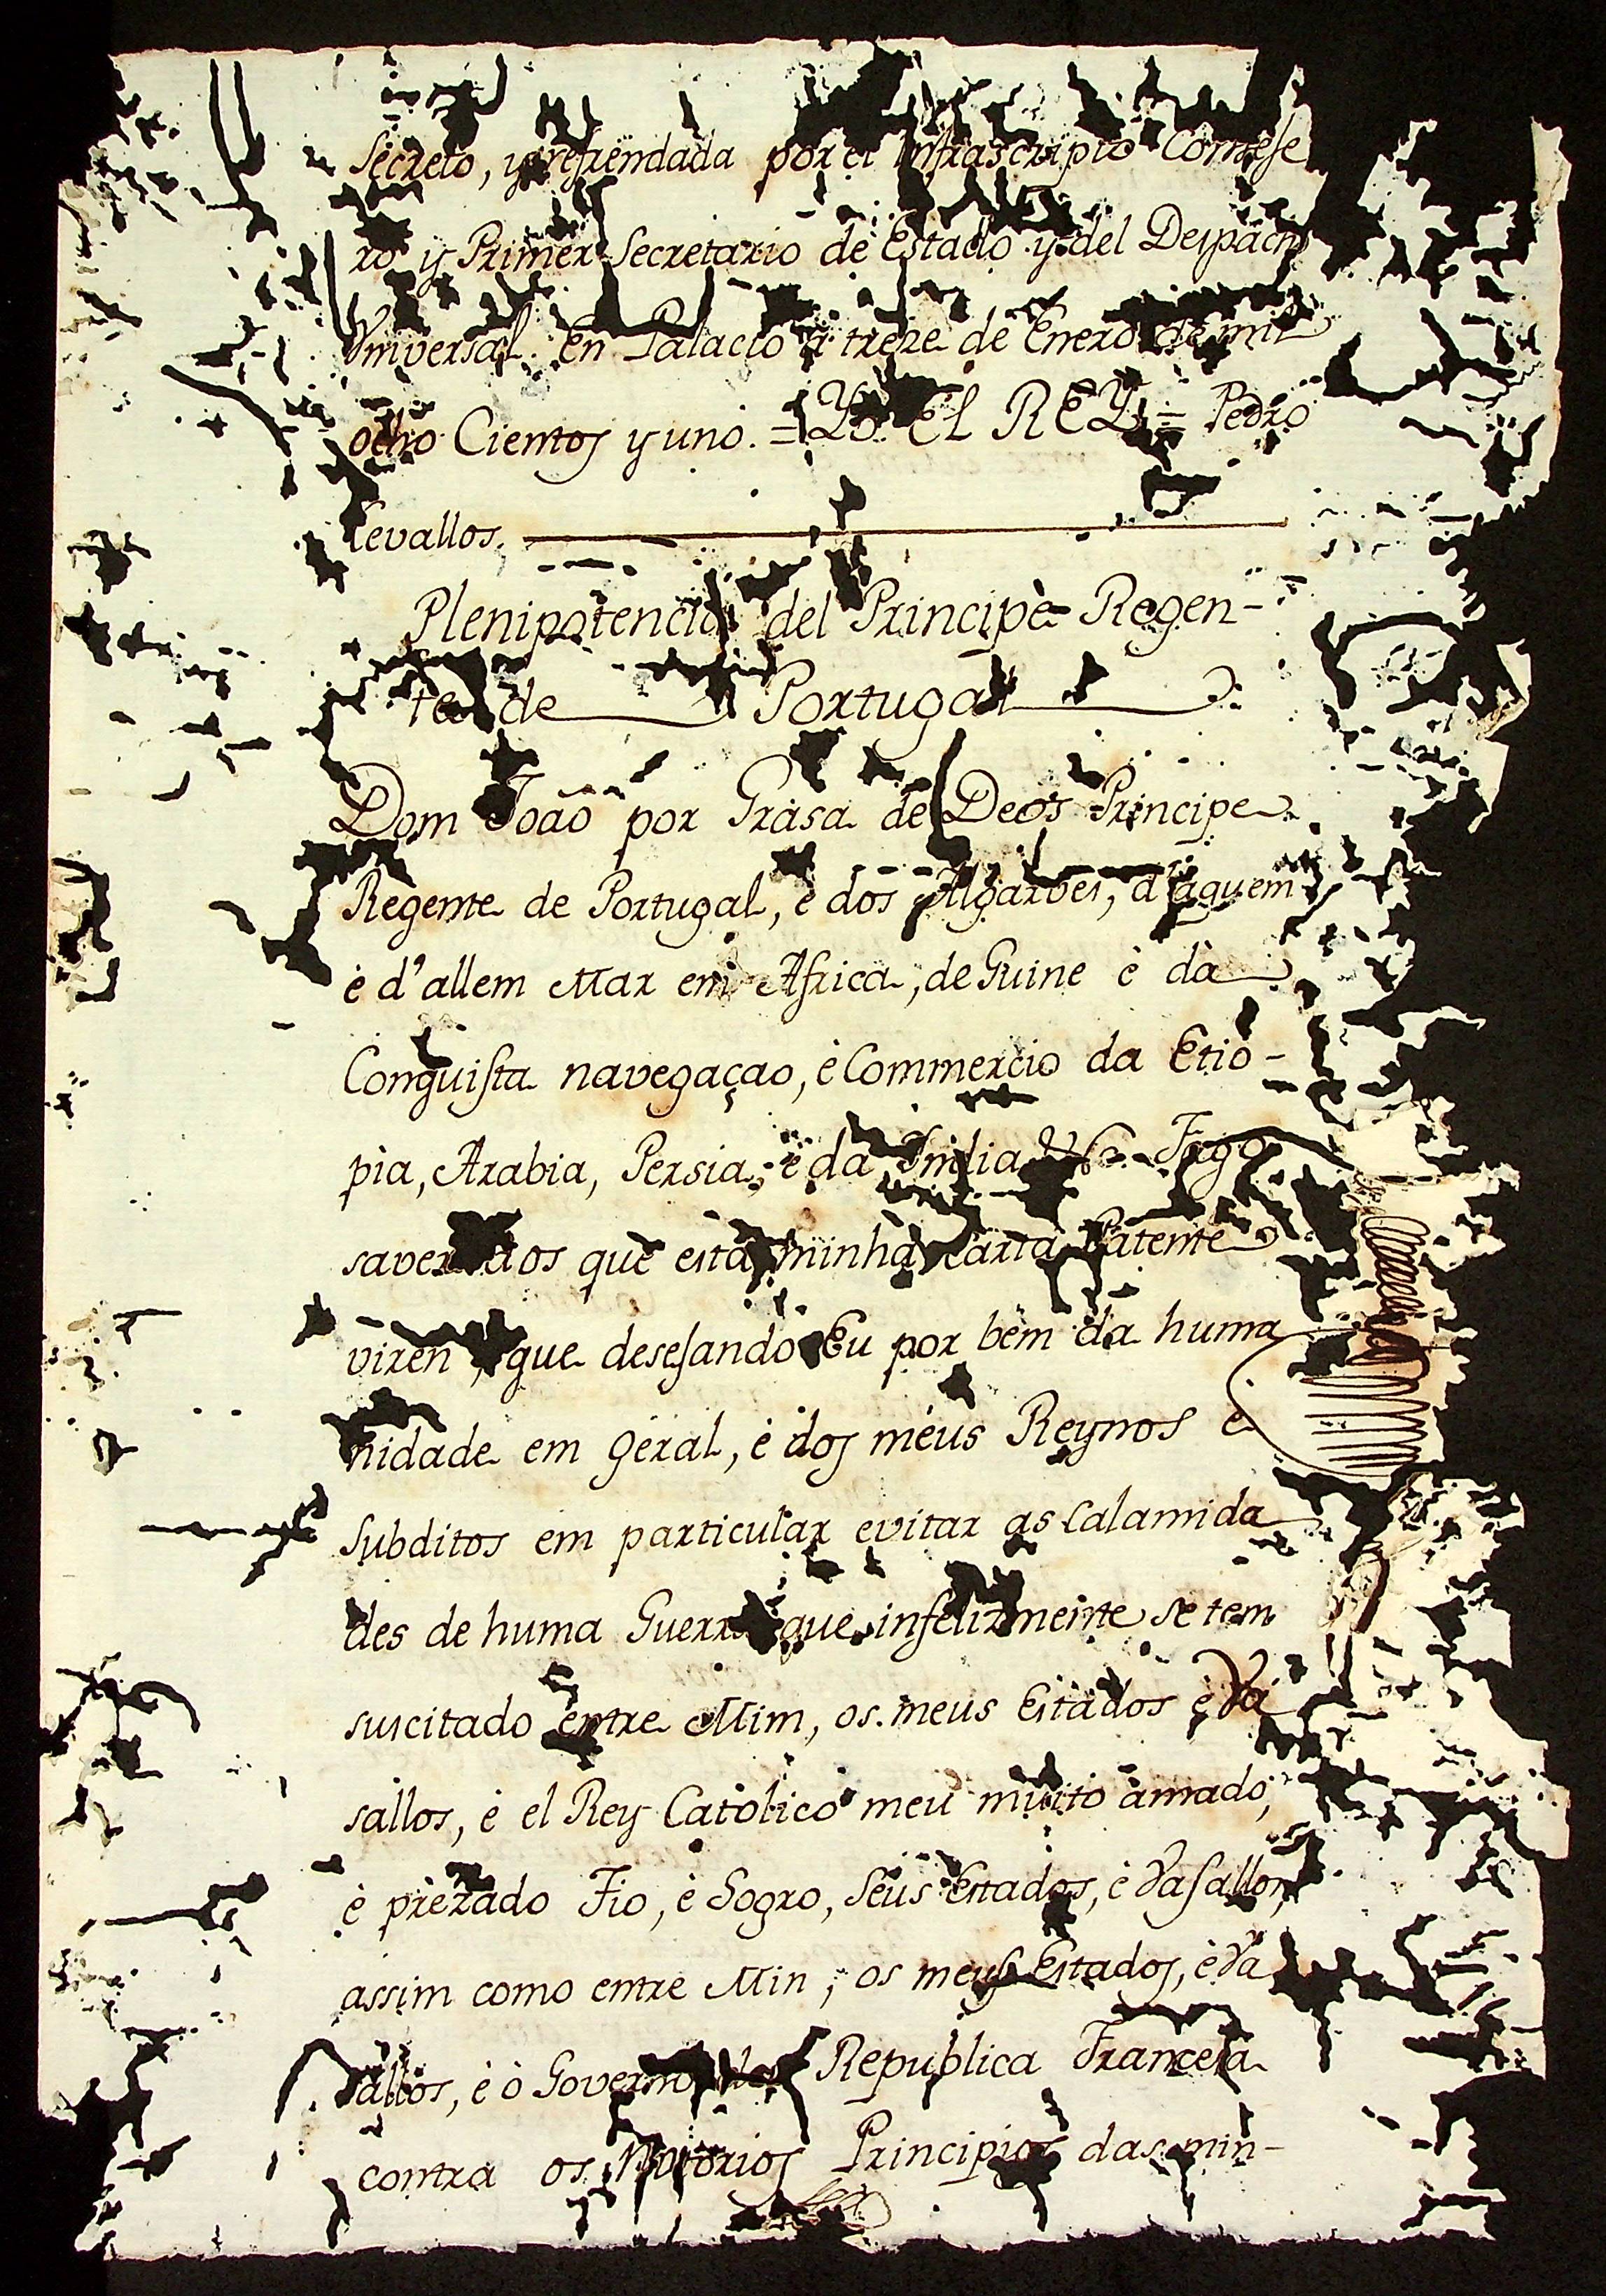 Secreto, y refrendada por el infrascripto Conseje
ro y Primer Secretario de Estado y del Despacho
Vniversal. En Palacio à treze de Enero de mil
ocho Cientos y uno. = Yo El REY = Pedro
Cevallos.
Plenipotencia del Principe Regen-
te de Portugal
Dom João por Grasa de Deos Principe
Regente de Portugal, è dos Algarves, d'aquem
è d'allem Mar em Africa, de Guine è dà
Conquista navegaçao, è Commercio da Etio-
pia, Arabia, Persia, è da India &a. Fago
saver aos que esta minha Carta Patente
viren, que desejando Eu por bem da huma
nidade em geral, è dos meus Reynos è
Subditos em particular evitar as Calamida
des de huma Guerra que infelizmente se tem
suscitado entre Mim, os meus Estados è Va
sallos, è el Rey Catolico meu muito amado,
è prezado Tio, è Sogro, Seus Estados, è Vasallos,
assim como entre Min, os meus Estados, è Va
sallos, è ò Governo da Republica Francesa
contra os Notorios Principios das min-